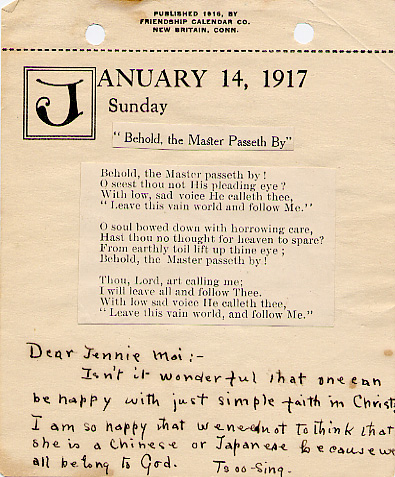 PUBLISHED 1916, BY
FRIENDSHIP CALENDAR CO.
NEW BRITAIN, CONN.
JANUARY 14, 1917
Sunday
"Behold, the Master Passeth By"
Behold, the Master passeth by!
O seest thou not His pleading eye?
With low, sad voice He calleth thee,
"Leave this vain world and follow Me."
O soul bowed down with horrowing care,
Hast thou no thought for heaven to spare?
From earthly toil lift up thine eye;
Behold, the Master passeth by!
Thou, Lord, art calling me;
I will leave all and follow Thee.
With low sad voice He calleth thee,
"Leave this vain world, and follow Me."
Dear Jennie Moi:-
Isn't it wonderful that one can
be happy with just simple faith in Christ
I am so happy that we need not to think that
she is a Chinese or Japanese because we
all belong to God. Ts oo-Sing.